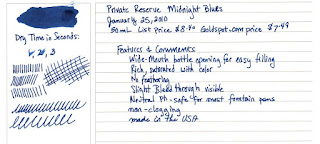 Private Reserve Midnight Blues
January 25, 2010
50mL List Price $8.40 Goldspot.com price $7.49
Dry Time in Seconds:
Features & Comments
Wide-Mouth bottle opening for easy filling
Rich, saturated with color
No feathering
Slight Bleed through visible
Neutral Ph - safe for most fountain pens
non-clogging
made in the USA